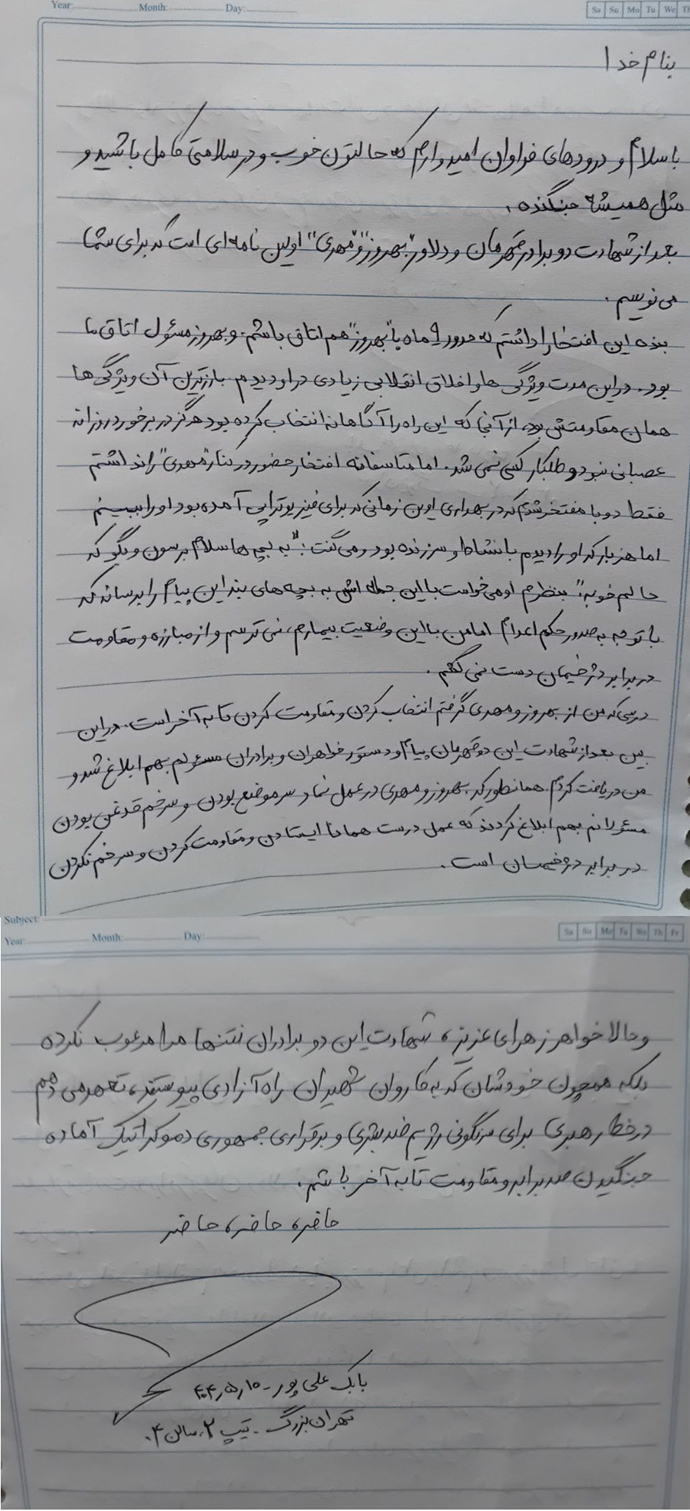 Year: Month: Day:
Sa Su Mo Tu We Th
بنام خدا
با سلام و درودهای فراوان امیدوارم که حالتون خوب و در سلامتی کامل باشید و
مثل همیشه جنگنده.
بعد از شهادت دو برادر قهرمان و دلاور "بهروز" و "مهدی" اولین نامه‌ای است که برای شما
می‌نویسم.
بنده این افتخار را داشتم که حدود ۹ ماه با "بهروز" هم اتاق باشم. و بهروز مسئول اتاق ما
بود. در این مدت ویژگی‌ها و اخلاق انقلابی زیادی در او دیدم. بارزترین آن ویژگی‌ها
همان مقاومتش بود. از آنجا که این راه را آگاهانه انتخاب کرده بود هرگز در برخورد روزانه
عصبانی نبود و طلبکار کسی نمی‌شد. اما متاسفانه افتخار حضور در کنار "مهدی" را نداشتم
فقط دو بار مفتخر شدم که در بهداری اوین زمانی که برای فیزیوتراپی آمده بود او را ببینم
اما هر بار که او را دیدم با نشاط و سرزنده بود و می‌گفت: "به بچه‌ها سلام برسون و بگو که
حالم خوبه" بنظرم او می‌خواست با این جمله اش به بچه‌های بند این پیام را برساند که
با توجه به صدور حکم اعدام اما من با این وضعیت بیمارم، نمی‌ترسم و از مبارزه و مقاومت
در برابر دژخیمان دست نمی‌کشم.
درسی که من از بهروز و مهدی گرفتم انتخاب کردن و مقاومت کردن تا به آخر است. در این
بین بعد از شهادت این دو قهرمان پیام و دستور خواهران و برادران مسئولم بهم ابلاغ شد و
من دریافت کردم همانطور که بهروز و مهدی در عمل نماد سر موضع بودن و سرخم بودن
مسئولانم بهم ابلاغ کردند که عمل درست همانا ایستادن و مقاومت کردن و سر خم نکردن
در برابر دژخیمان است.
Subject:
Year: Month: Day:
Sa Su Mo Tu We Th Fr
و حالا خواهر زهرای عزیز، شهادت این دو برادران نتنها مرا مرعوب نکرده
بلکه همچون خودشان که به کاروان شهیدان راه آزادی پیوستند، تعهد می‌دهم
در خط رهبری برای سرنگونی رژیم ضد بشری و برقراری جمهوری دموکراتیک آماده
جنگیدن صد برابر و مقاومت تا به آخر باشم.
حاضر، حاضر، حاضر
بابک علی پور - ۴۰۴٫۵٫۱۰
تهران بزرگ - تیپ ۲. سالن ۴.